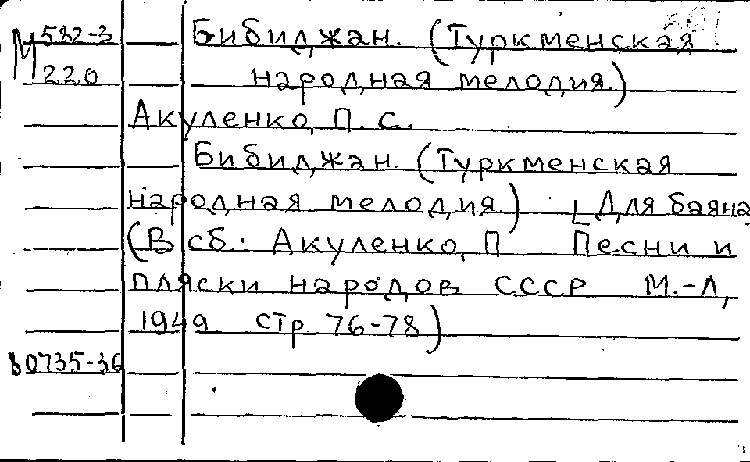 М 582-3 Бибиджан. (Туркменская
220 народная мелодия.)
Акуленко, П. С.
Бибиджан. (Туркменская
народная мелодия.) [Для баяна
(В сб.: Акуленко, П Песни и
пляски народов СССР М.-Л,
1949. стр. 76-78)
80735-36